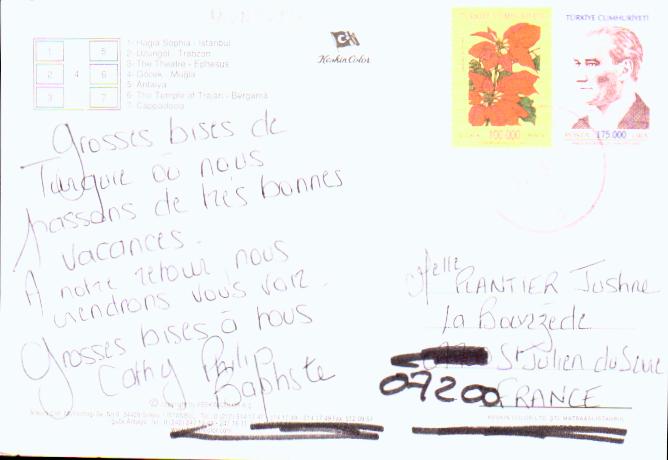 1- Hagia Sophia - Istanbul
2- Uzungöl - Trabzon
3- The Theatre - Ephesus
4- Göcek - Muğla
5- Antalya
6- The Temple of Trajan - Bergama
7- Cappadocia
1 5
2 4 6
3 7
Keskin Color
TÜRKİYE CUMHURİYETİ
100.000
TÜRKİYE CUMHURİYETİ
POSTA 175.000 LİRA
Grosses bises de
Turquie où nous
passons de très bonnes
vacances.
A notre retour nous
viendrons vous voir.
Grosses bises à tous
Cathy Philip
Baptiste
Melle PLANTIER Justine
La
St Julien du Serre
07200 FRANCE